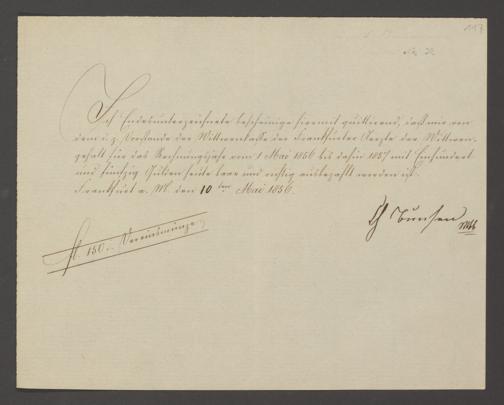 117
No 21
Ich Endesunterzeichnete bescheinige hiermit quittirend, daß mir von
dem z. z. Vorstande der Wittwenkasse der Frankfurter Aerzte der Wittwen-
gehalt für das Rechnungsjahr vom 1 Mai 1856 bis dahin 1857 mit Einhundert
und fünfzig Gulden heute baar und richtig ausbezahlt worden ist.
Frankfurt a. M. den 10ten Mai 1856.
Bunsen
fl. 150 .. Vereinsmünze